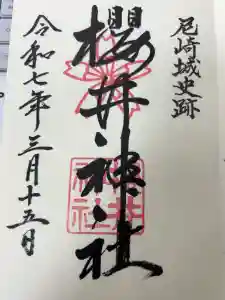 尼崎城史跡
櫻井神社
令和七年三月十五日
櫻井
神社